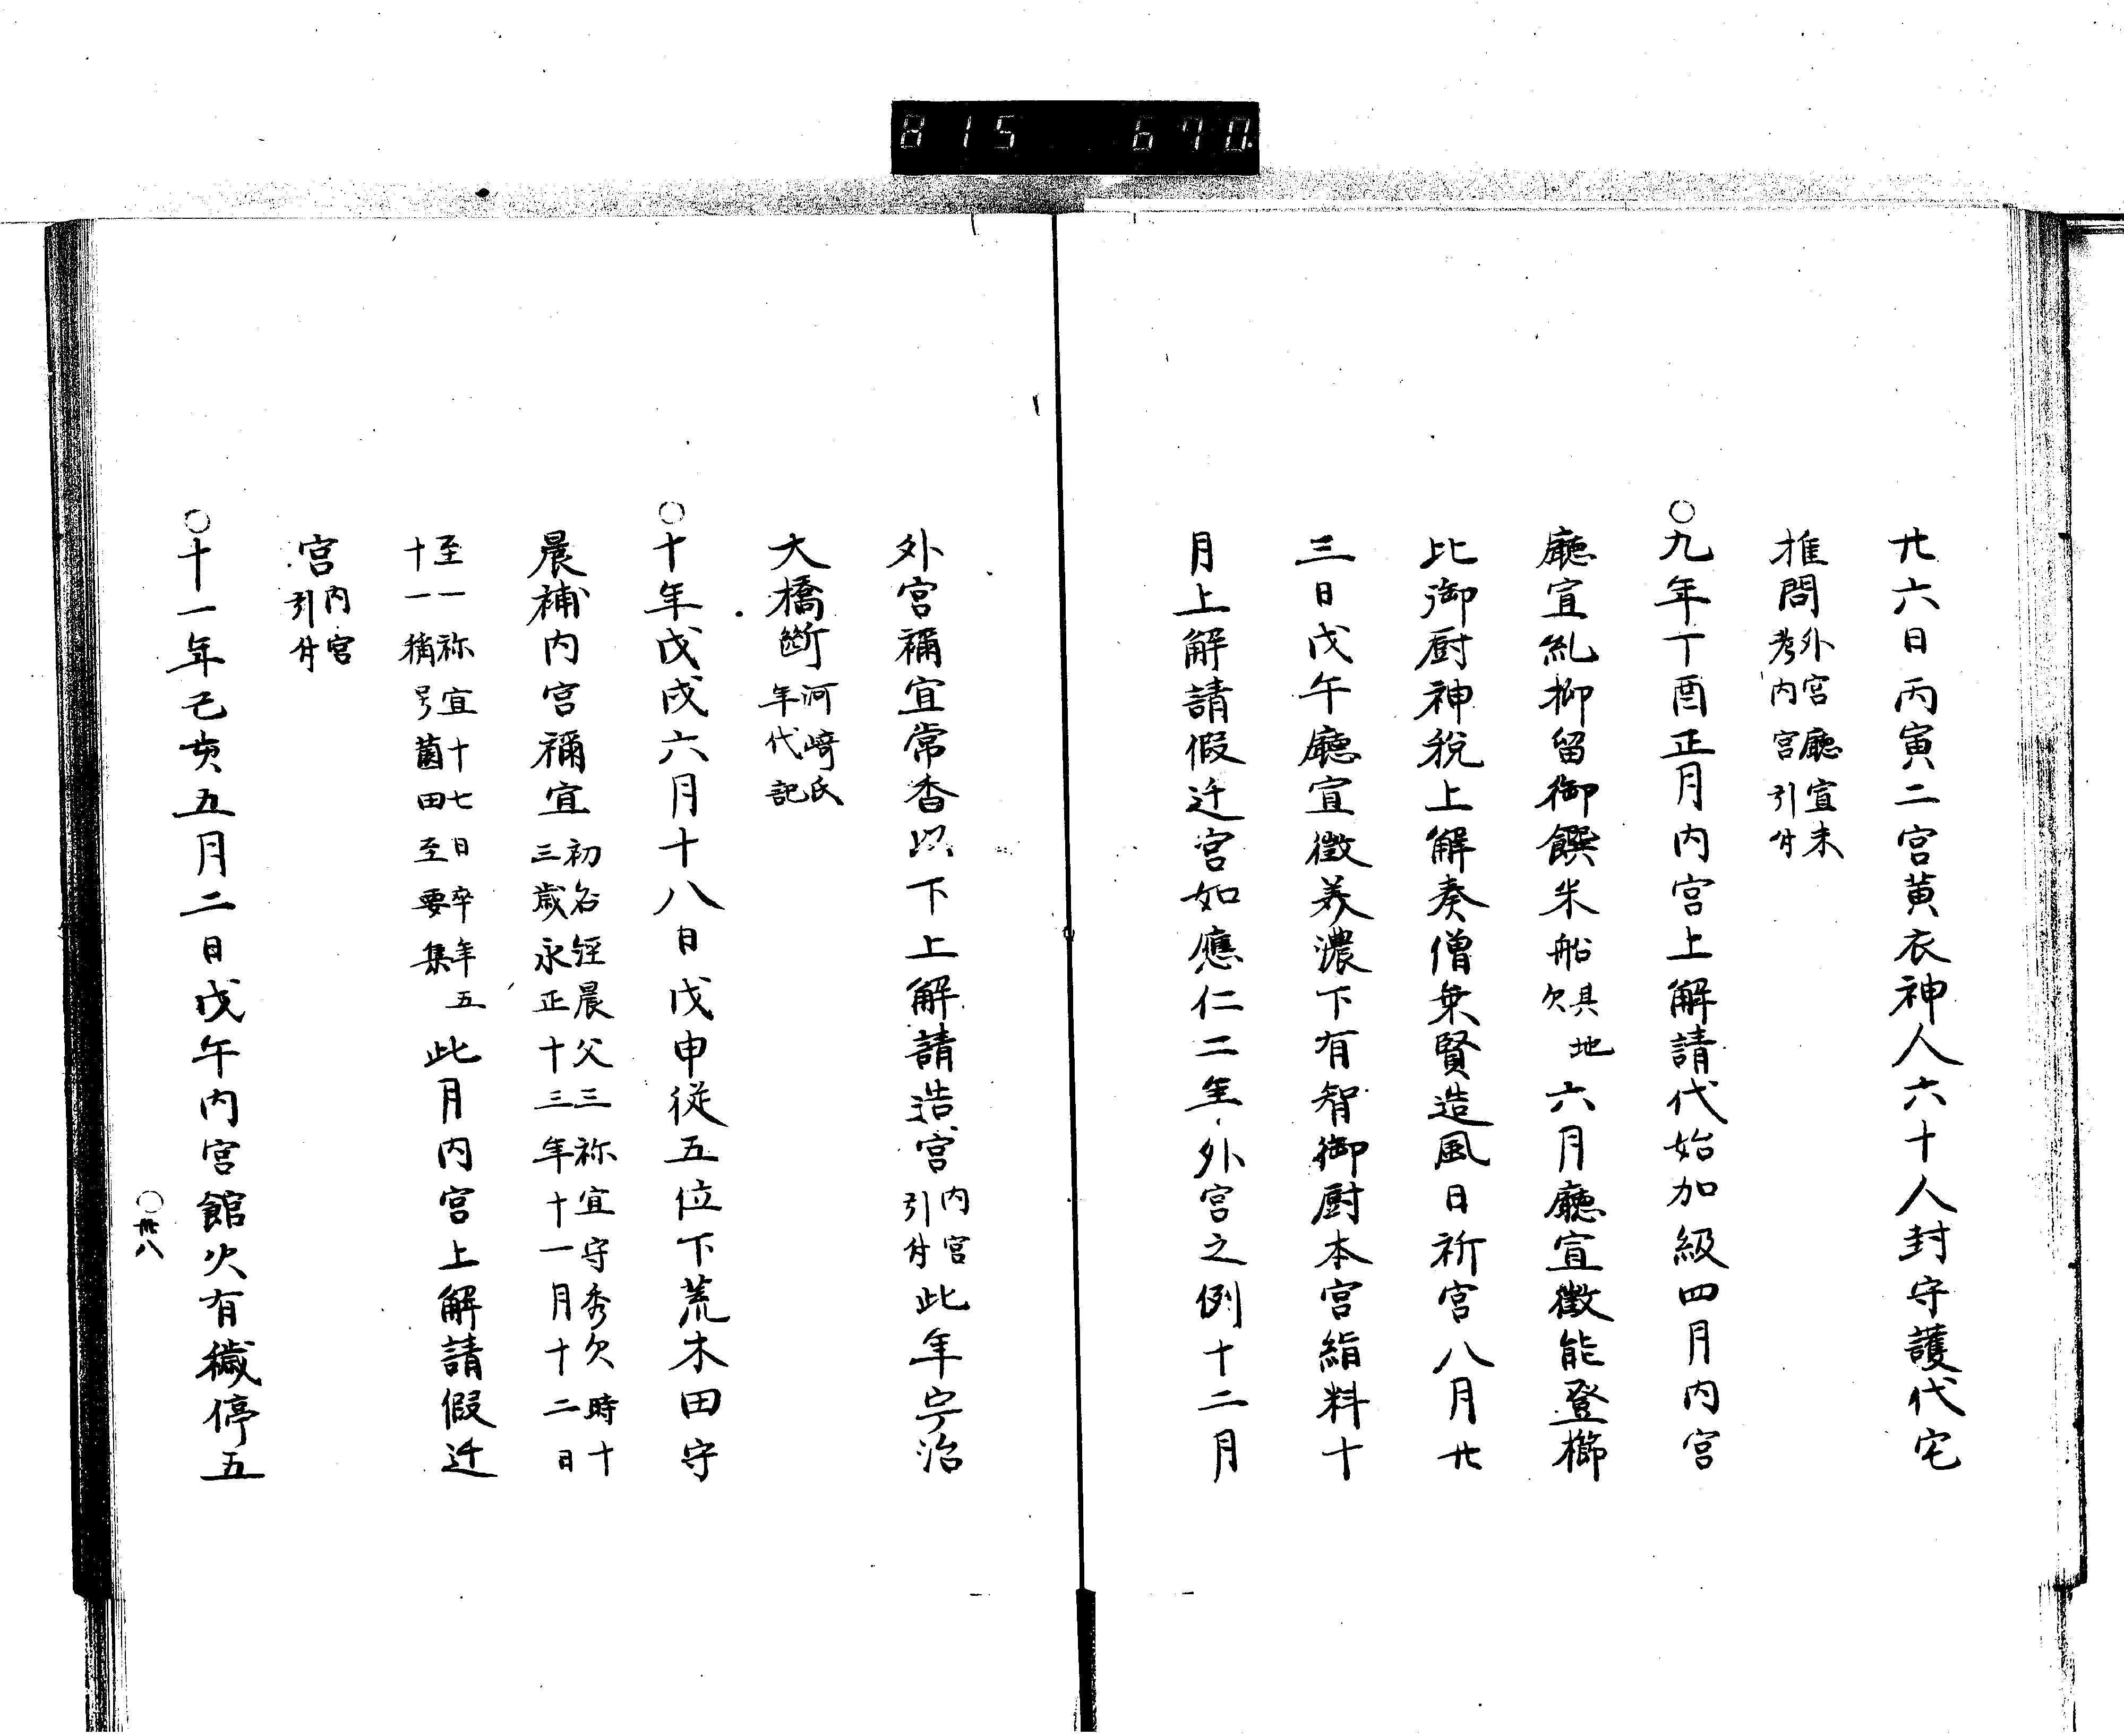 815 670
廿六日丙寅二宮黄衣神人六十人封守護代宅
推問外宮廳宣未考内宮引付
○九年丁酉正月内宮上解請代始加級四月内宮
廳宣糺抑留御饌米船具地欠六月廳宣徴能登櫛
比御厨神税上解奏僧乗賢造風日祈宮八月廿
三日戊午廳宣徴美濃下有智御厨本宮絹料十
月上解請假迁宮如應仁二年外宮之例十二月
外宮禰宜常香以下上解請造宮内宮引付此年宇治
大橋断河崎氏年代記
○十年戊戌六月十八日戊申従五位下荒木田守
晨補内宮禰宜初名経晨父三祢宜守秀欠時十三歳永正十三年十一月十二日
至一祢宜十七日卒年五十一稱号薗田至要集此月内宮上解請假迁
宮内宮引付
○十一年己亥五月二日戊午内宮館火有穢停五
○卌八